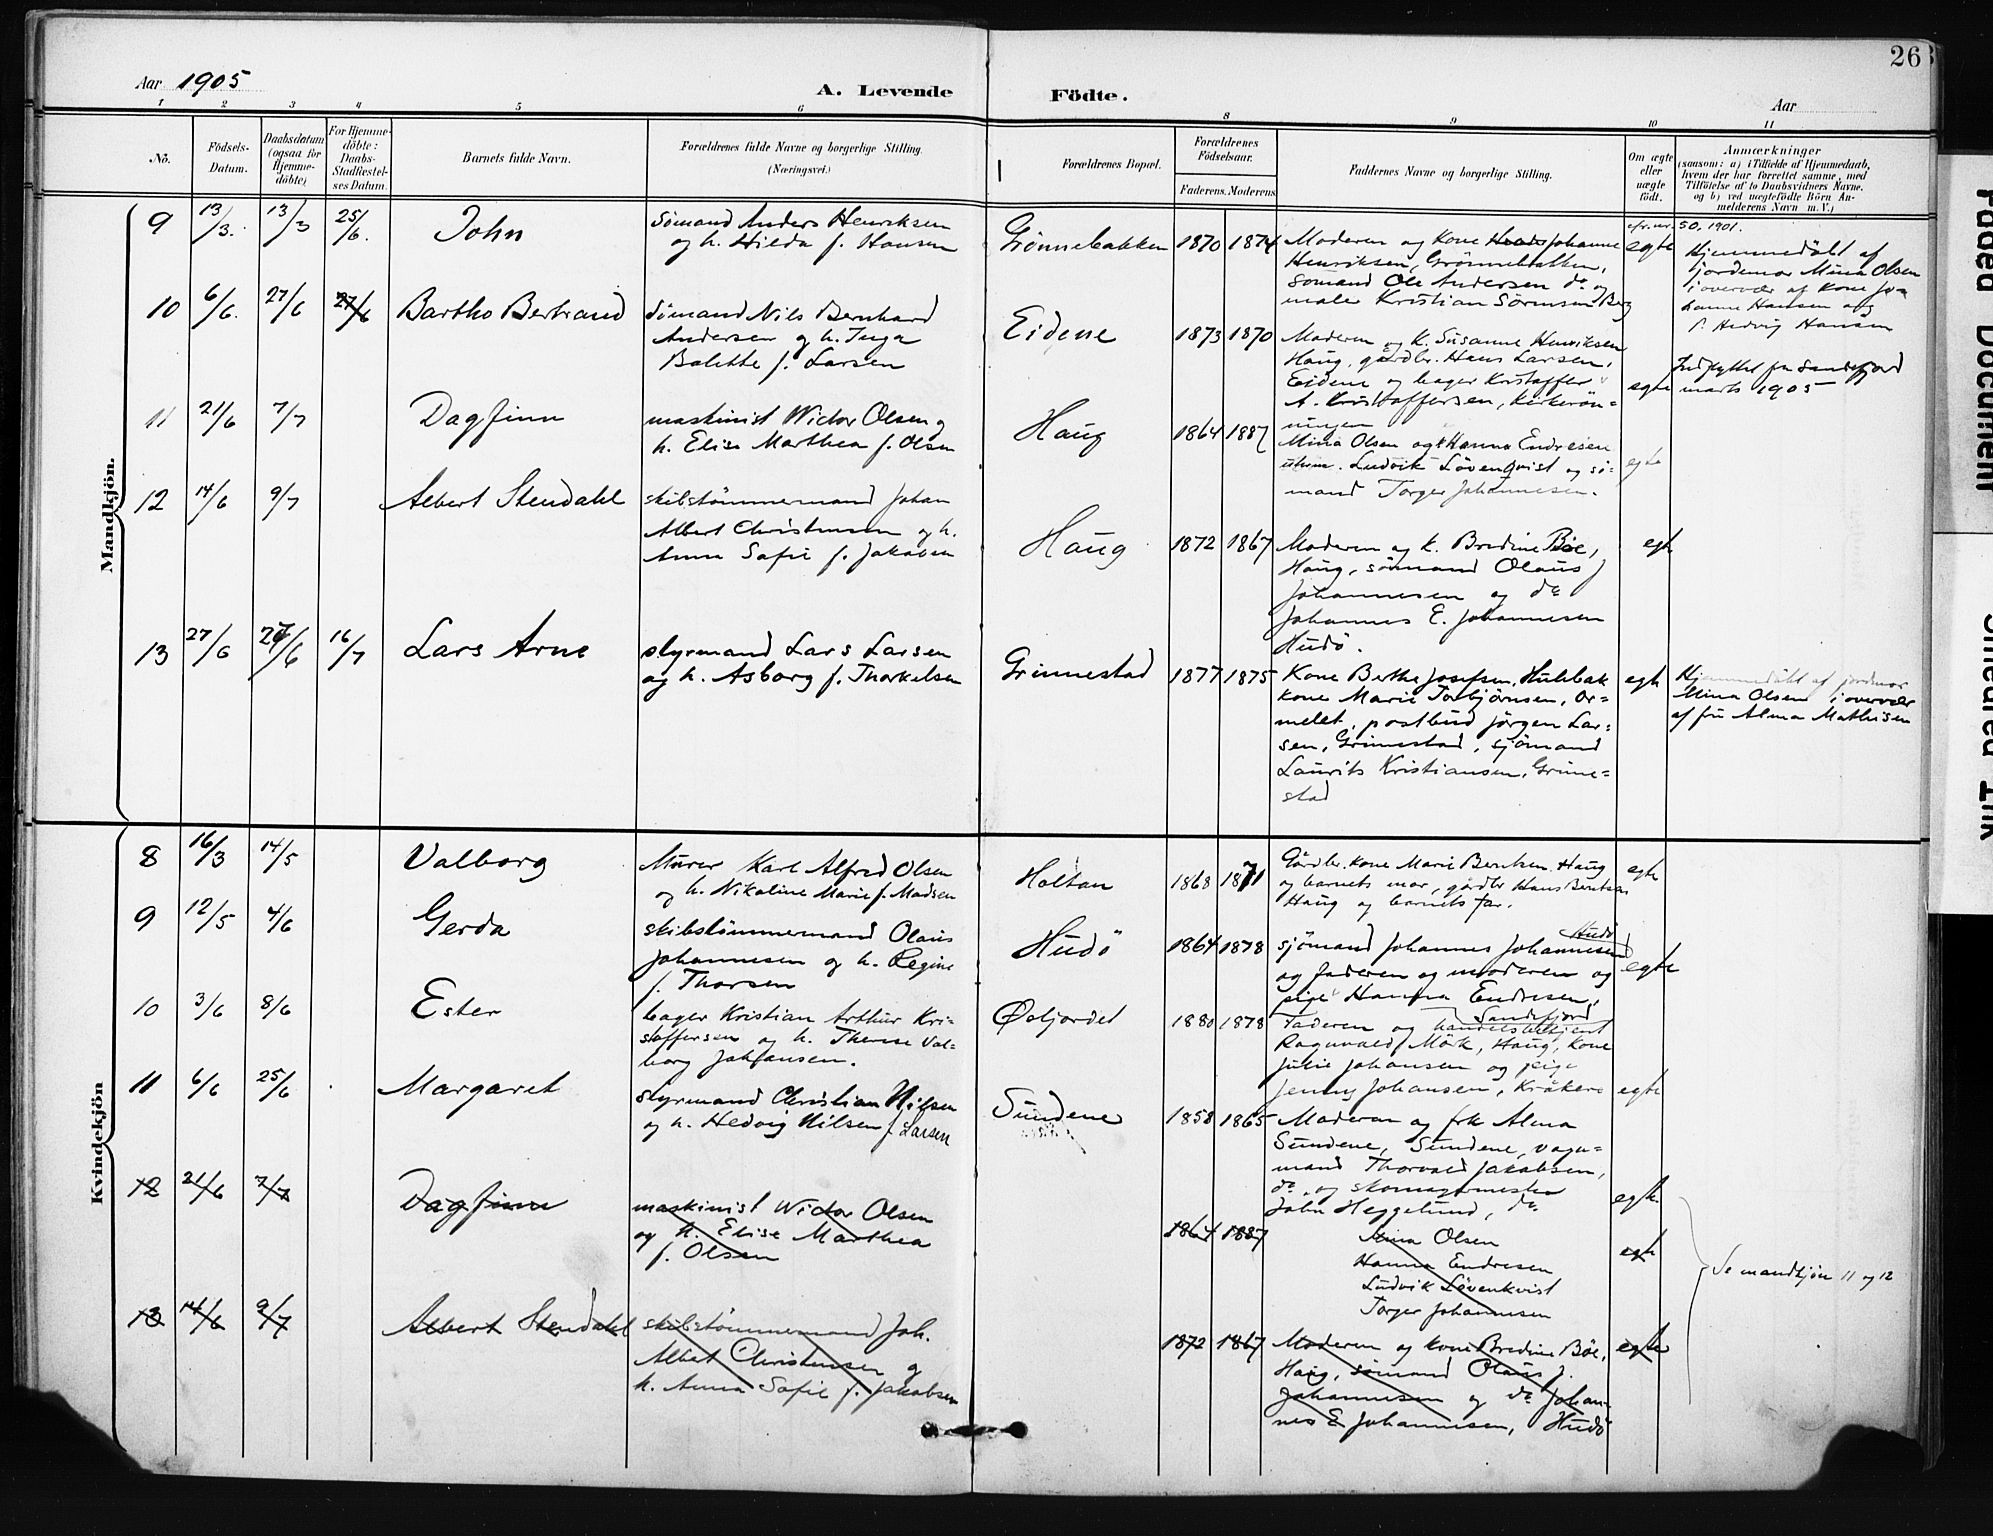 26
Aar 1905
A. Levende Födte.
Aar
1 2 3 4 5 6 8 9 10 11
No.
Födsels-Datum.
Daabsdatum (ogsaa for Hjemme-döbte)
For Hjemme-döbte: Daabs-Stadfæstel-ses Datum.
Barnets fulde Navn.
Forældrenes fulde Navne og borgerlige Stilling.
(Næringsvei.)
Forældrenes Bopæl.
Forældrenes Födselsaar.
Faderens. Moderens.
Faddernes Navne og borgerlige Stilling.
Om ægte eller uægte födt.
Anmærkninger
(saasom: a) i Tilfælde af Hjemmedaab,
hvem der har forrettet samme, med
Tilföielse af to Daabsvidners Navne.
og b) ved uægtefödte Börn An-
melderens Navn m. V.)
Mandkjön.
9 13/3. 13/3 25/6. John
Sømand Anders Henriksen
og h. Hilda f. Hansen
Grönnebakken 1870 1874
Moderen og Kone Johanne
Henriksen, Grönnebakken,
Sömand Ole Andersen do og
maler Kristian Sörensen Berg
egte
cfr. nr. 50, 1901.
Hjemmedöbt af
jordemor Mina Olsen
i overvær af Kone Jo-
hanne Hansen og
p. Hedvig Hansen
10 6/6. 27/6 27/6 Bartho Bertrand
Sömand Nils Bernhard
Andersen og h. Inga
Balette f. Larsen
Eidene 1873 1870
Moderen og k. Susanne Henriksen
Haug, gårdbr. Hans Larsen,
Eidene og bager Kristoffer
A. Kristoffersen, Kirkerön-
ningen
egte
Indflyttet fra Sandefjord
marts 1905
11 21/6 7/7 Dagfinn
maskinist Wictor Olsen og
h. Elise Marthea f. Olsen
Haug 1864 1887
Mina Olsen og Hanna Endresen
Ludvik Lövenqvist og sö-
mand Torger Johannesen.
egte
12 14/6 9/7 Albert Stendahl
skibstömmermand Johan
Albert Christensen og h.
Anna Sofie f. Jakobsen
Haug 1872 1867
Moderen og k. Bredine Böe,
Haug, sömand Olaus J
Johannesen og do
Johannes E. Johannesen
Hudö.
egte
13 27/6 27/6 16/7 Lars Arne
styrmand Lars Larsen
og h. Asborg f. Thorkelsen
Grimestad 1877 1875
Kone Berthe Josefsen, Hulebak
kone Marie Torbjörnsen, Or-
melet, postbud Jörgen Lar-
sen, Grimestad, sjömand
Laurits Kristiansen, Grime-
stad
egte
Hjemmedöbt af jordmor
Mina Olsen i overvær
af fru Alma Mathisen
Kvindekjön
8 16/3 14/5 Valborg
Murer Karl Alfred Olsen
og h. Nikoline Marie f. Madsen
Holtan 1868 1871
Gårdbr. kone Marie Berntsen Haug
og barnets mor, gårdbr Hans Berntsen
Haug og barnets far.
egte
9 12/5 4/6 Gerda
skibstömmermand Olaus
Johannesen og h. Regine
f. Thorsen
Hudö 1864 1878
sjömand Johannes Johannesen Hudö
og faderen og moderen og
pige Hanna Endresen,
egte
10 3/6 8/6 Ester
bager Kristian Arthur Kri-
stoffersen og h. Therese Val-
borg Johansen.
Østjordet 1880 1878
Faderen og handelsbetjent Sandefjord
Ragnvald Mörk, Haug, Kone
Julie Johansen og pige
Jenny Johansen, Kråkere
egte
11 6/6 25/6 Margaret
styrmand Christian Nilsen
og h. Hedvig Nilsen f. Larsen
Sundene 1858 1865
Moderen og frk Alma
Sundene, Sundene, vogn-
mand Thorvald Jakobsen,
do, og skomagermester
John Heggelund, do
egte
12 21/6 7/7 Dagfinn
maskinist Wictor Olsen
og h. Elise Marthea
f. Olsen
1864 1887
Mina Olsen
Hanna Endresen
Ludvik Lövenkvist
Torger Johannesen
egte
Se mandkjön 11 og 12
13 14/6 9/7 Albert Stendahl
skibstömmermand Joh.
Albert Christensen og
h. Anna Sofie f. Jakobsen
1872 1867
Moderen og kone Bredine Böe,
Haug, sömand Olaus J.
Johannesen og do Johan-
nes E Johannesen, Hudö
egte
Faded Document
Smeared Ink